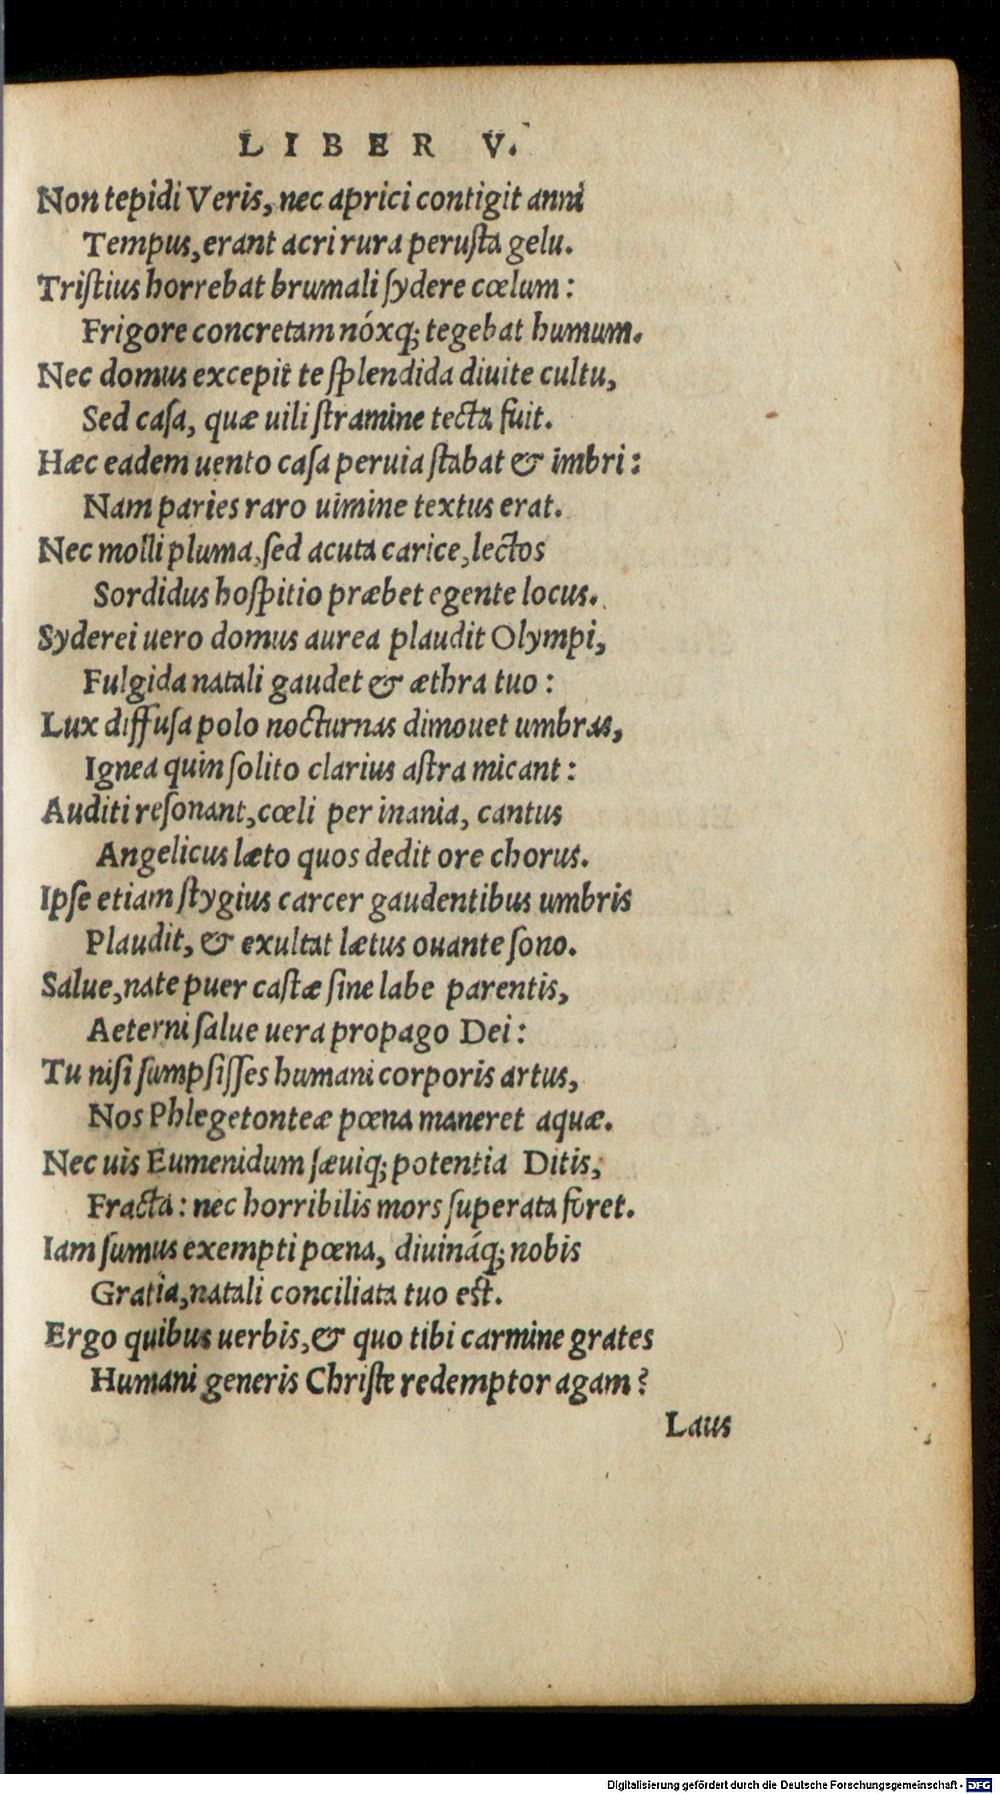 LIBER V.
Non tepidi Veris, nec aprici contigit anni
Tempus, erant acri rura perusta gelu.
Tristius horrebat brumali sydere cœlum:
Frigore concretam nóxq; tegebat humum.
Nec domus excepit te splendida diuite cultu,
Sed casa, quæ uili stramine tecta fuit.
Hæc eadem uento casa peruia stabat & imbri:
Nam paries raro uimine textus erat.
Nec molli pluma, sed acuta carice, lectos
Sordidus hospitio præbet egente locus.
Syderei uero domus aurea plaudit Olympi,
Fulgida natali gaudet & æthra tuo:
Lux diffusa polo nocturnas dimouet umbras,
Ignea quin solito clarius astra micant:
Auditi resonant, cœli per inania, cantus
Angelicus læto quos dedit ore chorus.
Ipse etiam stygius carcer gaudentibus umbris
Plaudit, & exultat lætus ouante sono.
Salue, nate puer castæ sine labe parentis,
Aeterni salue uera propago Dei:
Tu nisi sumpsisses humani corporis artus,
Nos Phlegetonteæ pœna maneret aquæ.
Nec uis Eumenidum sæuiq; potentia Ditis,
Fracta: nec horribilis mors superata foret.
Iam sumus exempti pœna, diuináq; nobis
Gratia, natali conciliata tuo est.
Ergo quibus uerbis, & quo tibi carmine grates
Humani generis Christe redemptor agam?
Laus
Digitalisierung gefördert durch die Deutsche Forschungsgemeinschaft - DFG